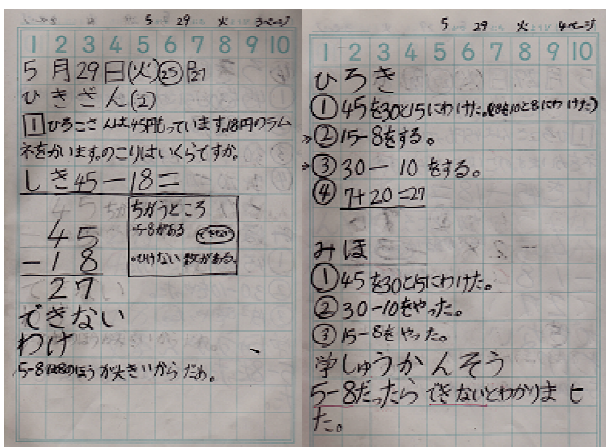 5 29 火 3ページ
1 2 3 4 5 6 7 8 9 10
5月29日(火)
ひきざん(2)
1 ひろこさんは45円もっています。18円のラム
ネをかいます。のこりはいくらですか。
しき45-18=
ちがうところ
5-8がある
ひけない数がある。
45
-18
27
できない
わけ
5-8は8のほうが大きいからだあ。
5 29 火 4ページ
1 2 3 4 5 6 7 8 9 10
ひろき
①45を30と15にわけた。(18を10と8にわけた)
②15-8をする。
③30-10をする。
④7+20=27
みほ
①45を30と15にわけた。
②30-10をやった。
③15-8をやった。
学しゅうかんそう
5-8だったらできないとわかりまし
た。